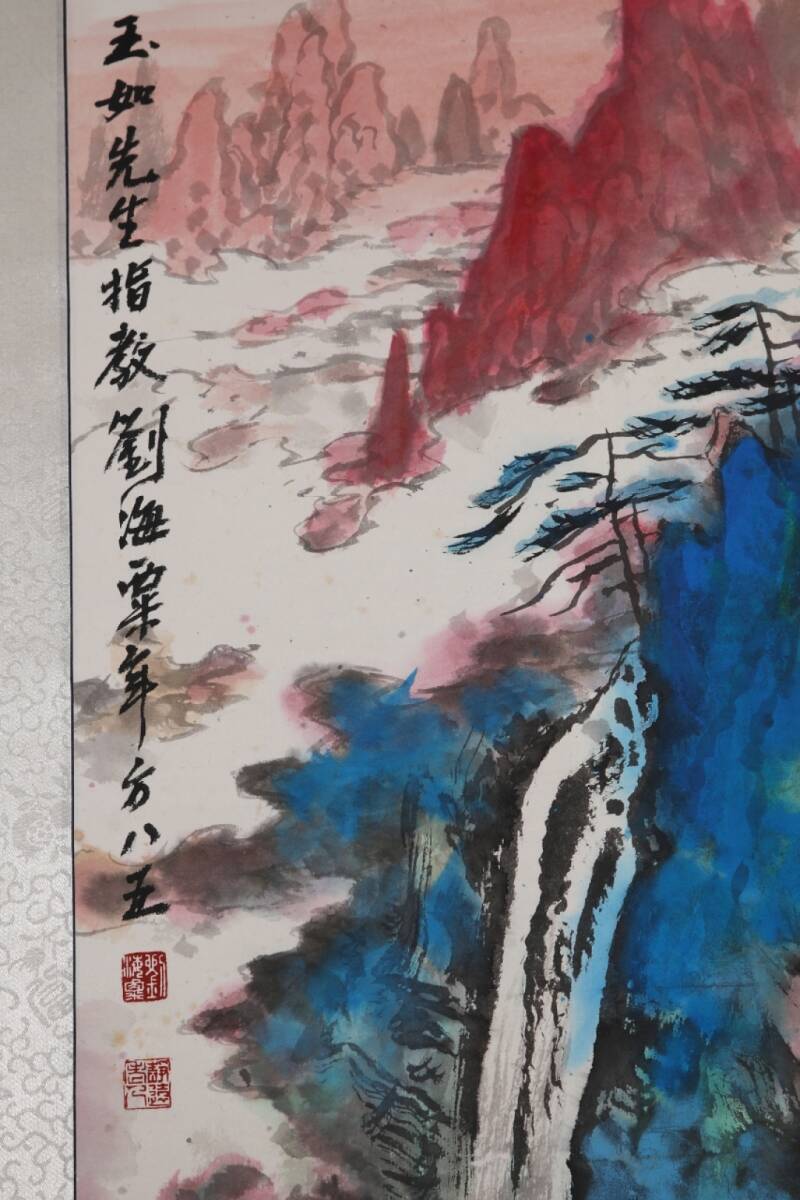 玉如先生指教劉海粟年方八五
劉海粟
靜遠老人